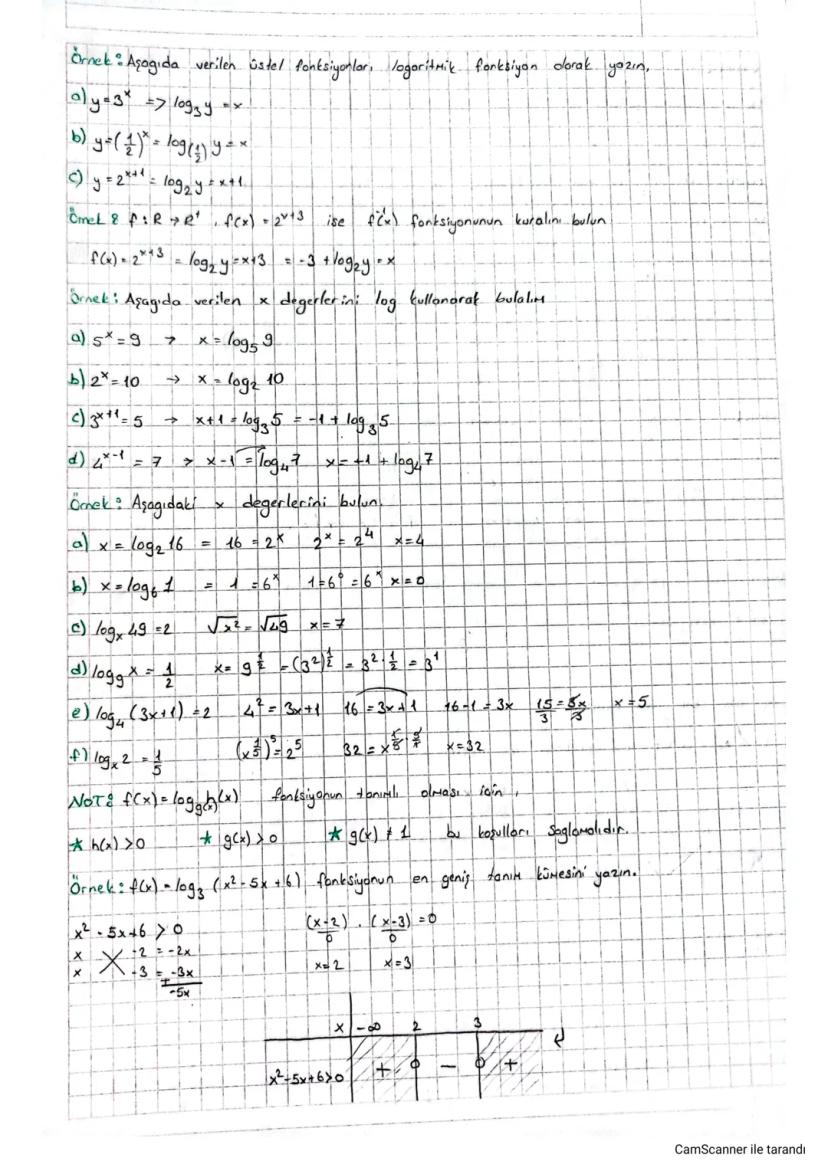 Örnek: Aşagıda verilen üstel fonksiyonları logaritmik fonksiyon olarak yazın.
a) y=3^x => log₃y = x
b) y=(1/2)^x = log_(1/2) y = x
c) y = 2^(x+1) = log₂y = x+1
Örnek: f: R → R⁺, f(x) = 2^(x+3) ise f⁻¹(x) fonksiyonunun kuralını bulun
f(x) = 2^(x+3) = log₂y = x+3 = -3 + log₂y = x
Örnek: Aşagıda verilen x degerlerini log kullanarak bulalım
a) 5^x = 9 → x = log₅9
b) 2^x = 10 → x = log₂ 10
c) 3^(x+1) = 5 → x+1 = log₃5 = -1 + log₃5
d) 4^(x-1) = 7 → x-1 = log₄7 x = +1 + log₄7
Örnek: Aşagıdaki x degerlerini bulun.
a) x = log₂16 = 16 = 2^x 2^x = 2^4 x=4
b) x = log₆1 = 1 = 6^x 1=6^0 = 6^x x=0
c) log_x 49 = 2 √x² = √49 x = 7
d) log₉x = 1/2 x = 9^(1/2) = (3²)^(1/2) = 3^(2·1/2) = 3¹
e) log₄(3x+1) = 2 4² = 3x+1 16 = 3x+1 16-1 = 3x 15/3 = 3x/3 x=5
f) log_x 2 = 1/5 (x^(1/5))^5 = 2^5 32 = x^(1/5 · 5/1) x=32
NOT: f(x) = log_g(x) h(x) fonksiyonun tanımlı olması için,
* h(x) > 0 * g(x) > 0 * g(x) ≠ 1 bu koşulları Saglamalıdır.
Örnek: f(x) = log₃ (x² - 5x + 6) fonksiyonun en geniş tanım kümesini yazın.
x² - 5x+6 > 0 (x-2) . (x-3) = 0
x -2 = -2x 0 0
x -3 = -3x x=2 x=3
+ -5x
x -∞ 2 3
x²-5x+6>0 + - +
CamScanner ile tarandı